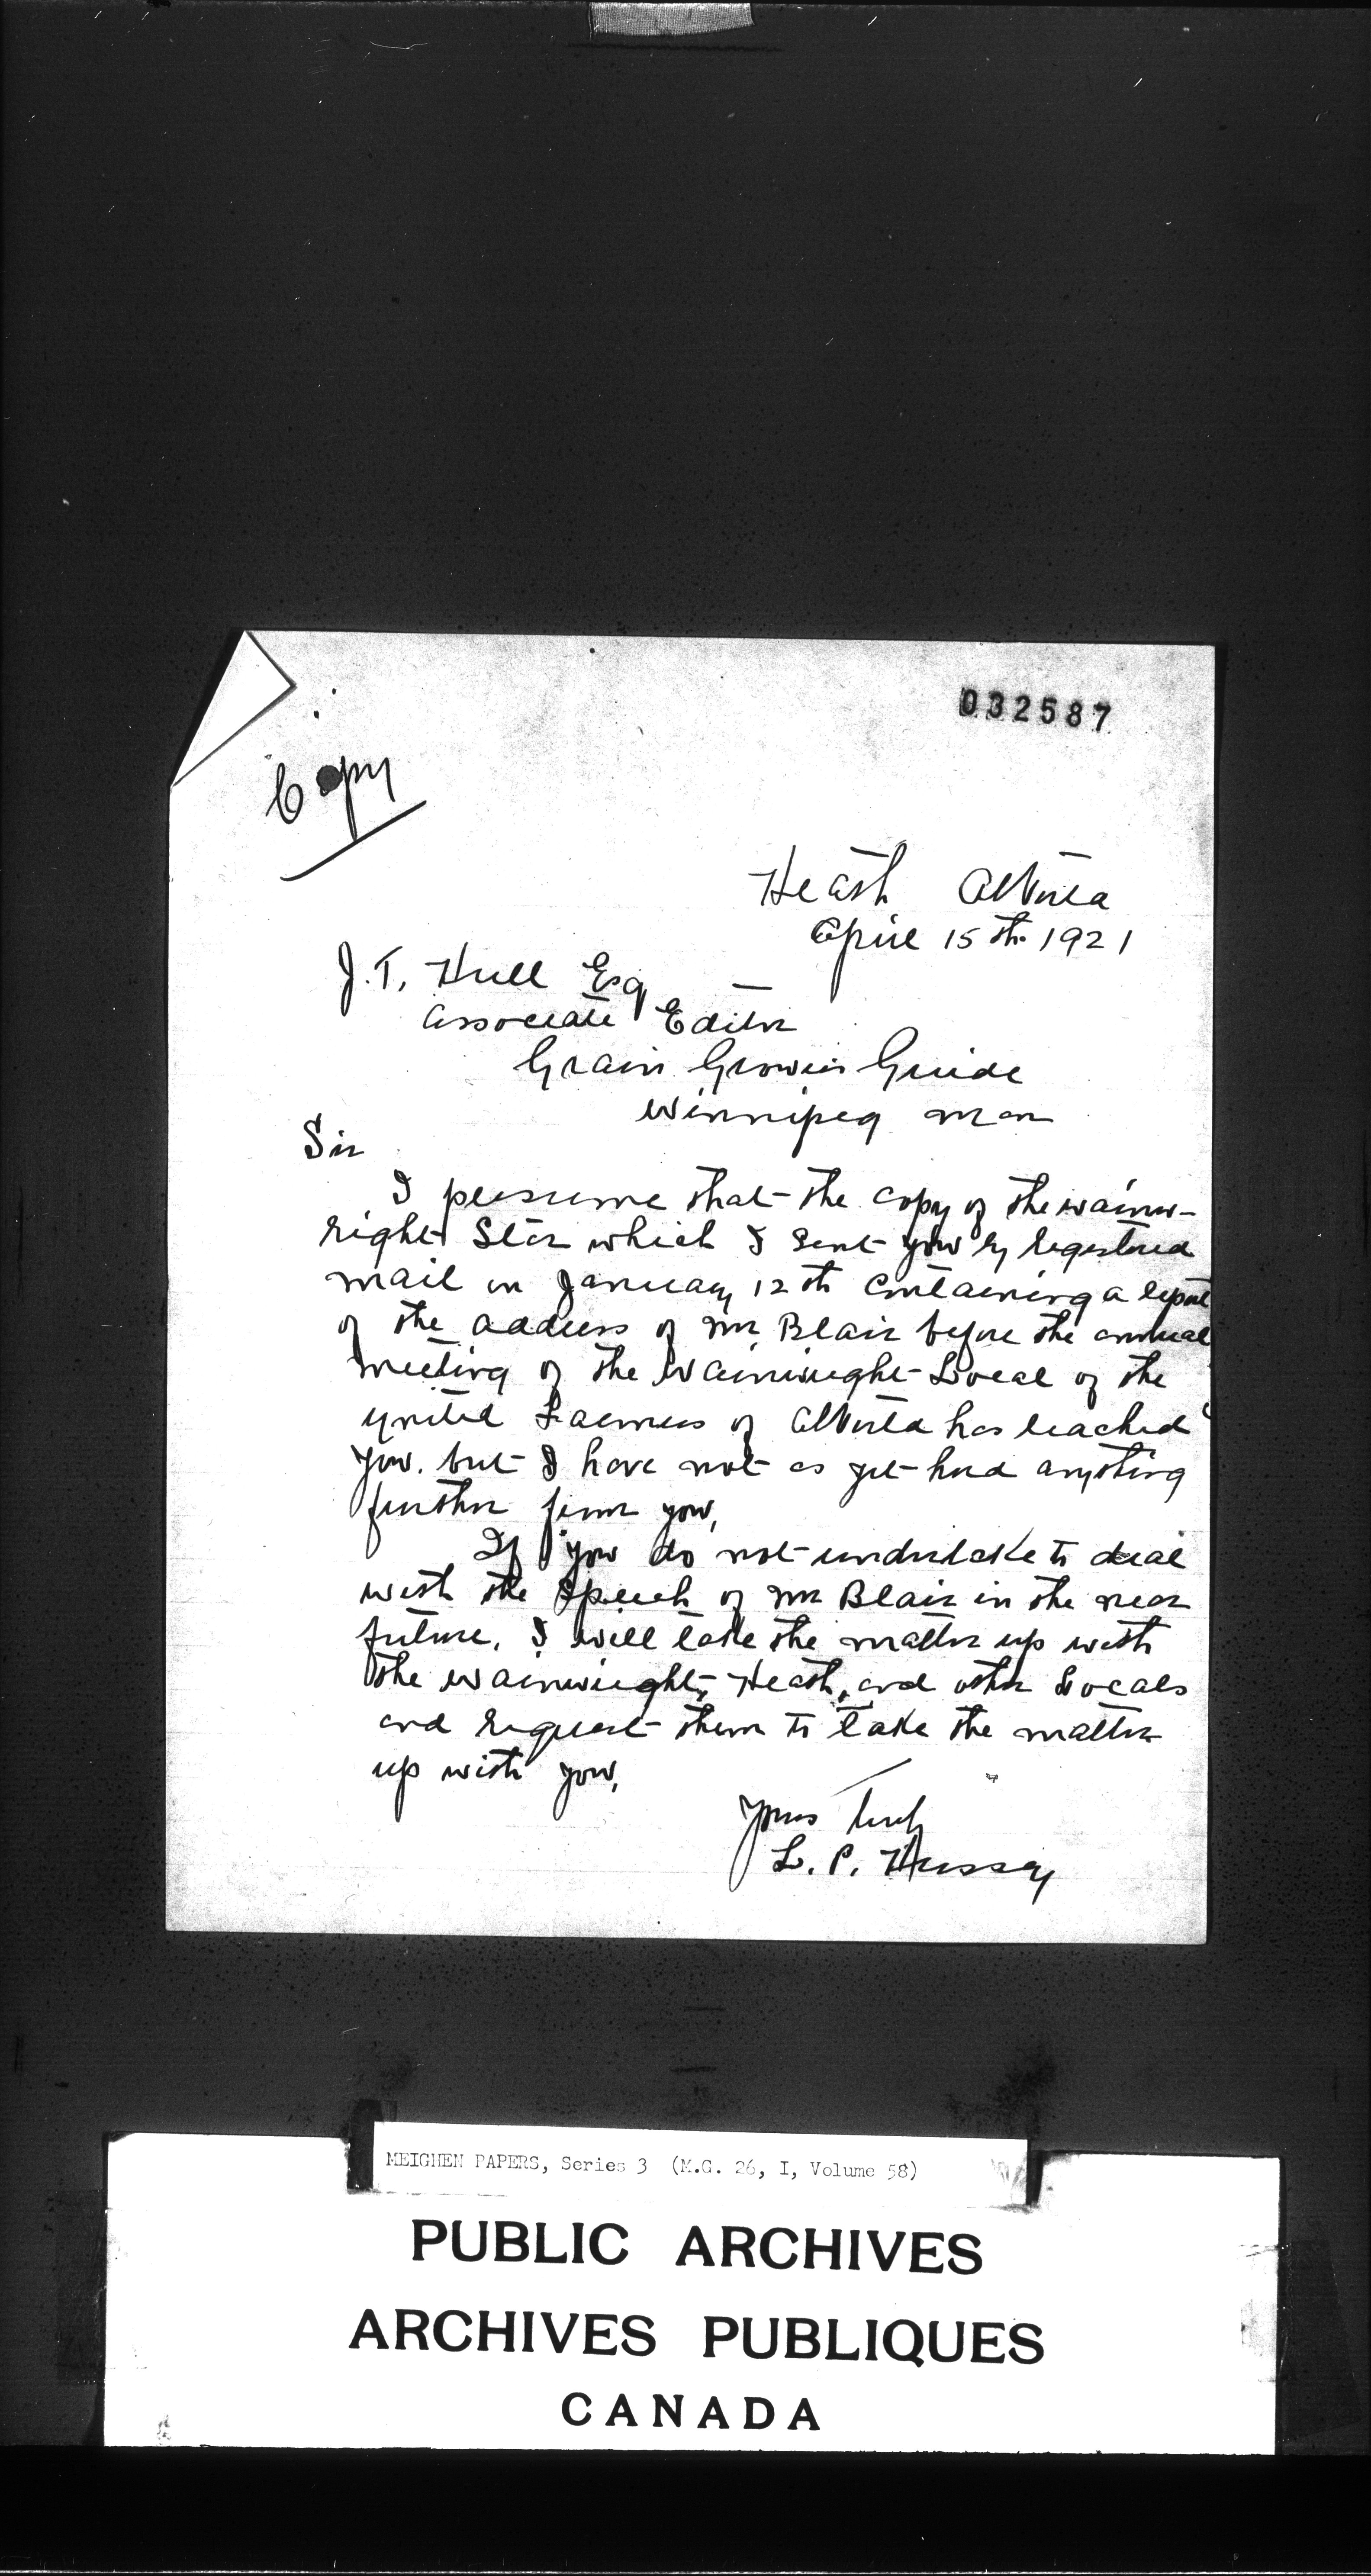 032587
Copy
Heath Alberta
April 15th 1921
J. T. Hull Esq
Associate Editor
Grain Growers Guide
Winnipeg Man
Sir
I presume that the copy of the Wainw-
right Star which I sent you by registered
mail on January 12th containing a report
of the address of Mr Blair before the annual
meeting of the Wainwright Local of the
United Farmers of Alberta has reached
you. but I have not as yet had anything
further from you,
If you do not undertake to deal
with the speech of Mr Blair in the near
future, I will take the matter up with
the Wainwright, Heath, and other Locals
and request them to take the matter
up with you,
Yours Truly
L. P. Hussey
MEIGHEN PAPERS, Series 3 (M.G. 26, I, Volume 58)
PUBLIC ARCHIVES
ARCHIVES PUBLIQUES
CANADA